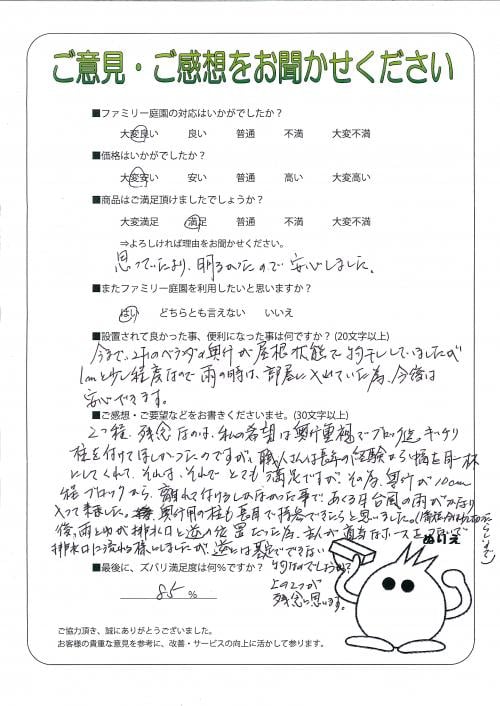 ご意見・ご感想をお聞かせください
■ファミリー庭園の対応はいかがでしたか？
大変良い　良い　普通　不満　大変不満
■価格はいかがでしたか？
大変安い　安い　普通　高い　大変高い
■商品はご満足頂けましたでしょうか？
大変満足　満足　普通　不満　大変不満
⇒よろしければ理由をお聞かせください。
思っていたより、明るかったので安心しました。
■またファミリー庭園を利用したいと思いますか？
はい　どちらとも言えない　いいえ
■設置されて良かった事、便利になった事は何ですか？(20文字以上)
今まで、2Fのベランダの奥行が屋根状態で物干ししていましたが
1mと少し程度なので雨の時は、部屋に入れていた為、今後は
安心できます。
■ご感想・ご要望などをお書きくださいませ。(30文字以上)
2つ程、残念なのは、私の希望は奥行重視でブロック迄、キッチリ
柱を付けてほしかったのですが、職人さんは長年の経験から幅を目一杯
にしてくれて、それは、それでとても満足ですが、その為、奥行が10cm
程ブロックから、離れて付けるしかなかった事で
入って来ました。
後、雨どいが排水口と逆の位置だった為、主人が適当なホースを
排水口に流れる様にしましたが、
■最後に、ズバリ満足度は何％ですか？
85 ％
上の2つが
残念に思います。
ぬけえ
ご協力頂き、誠にありがとうございました。
お客様の貴重な意見を参考に、改善・サービスの向上に活かして参ります。